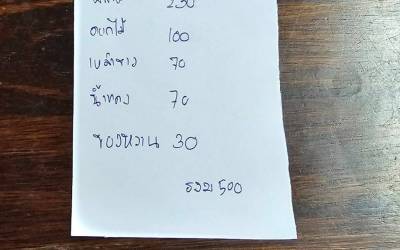 230
ดอกไม้ 100
70
น้ำแดง 70
ของหวาน 30
รวม 500